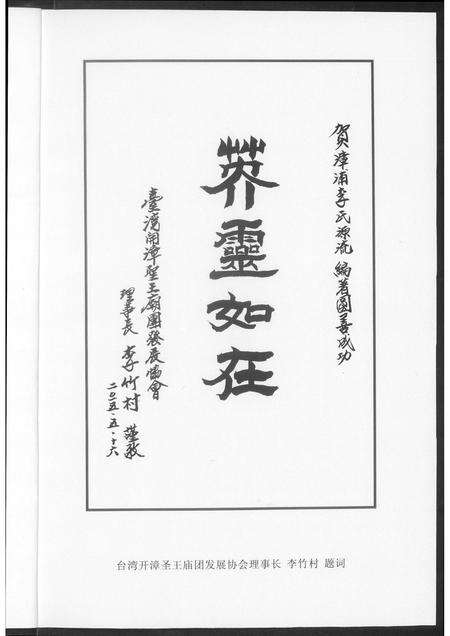 賀漳浦李氏源流 編著圓善成功
英靈如在
臺灣開漳聖王廟團發展協會
理事長 李竹村 謹敬
二〇一五·五·十六
台湾开漳圣王庙团发展协会理事长 李竹村 题词